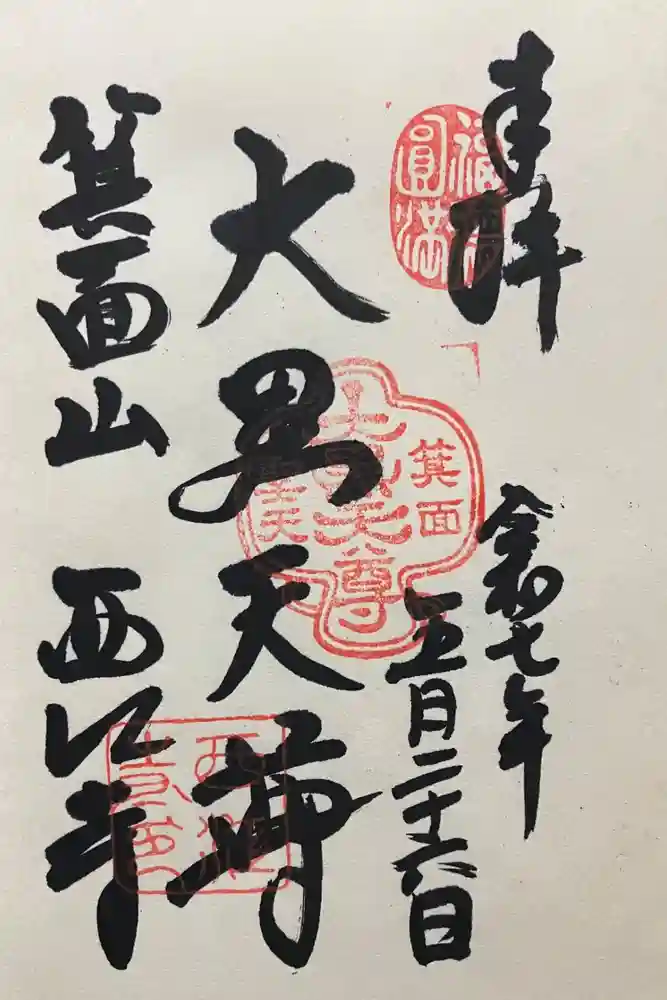 奉拝
福
圓満
令和七年
五月二十六日
箕面
大黒天尊
大黒天尊
箕面山 西江寺